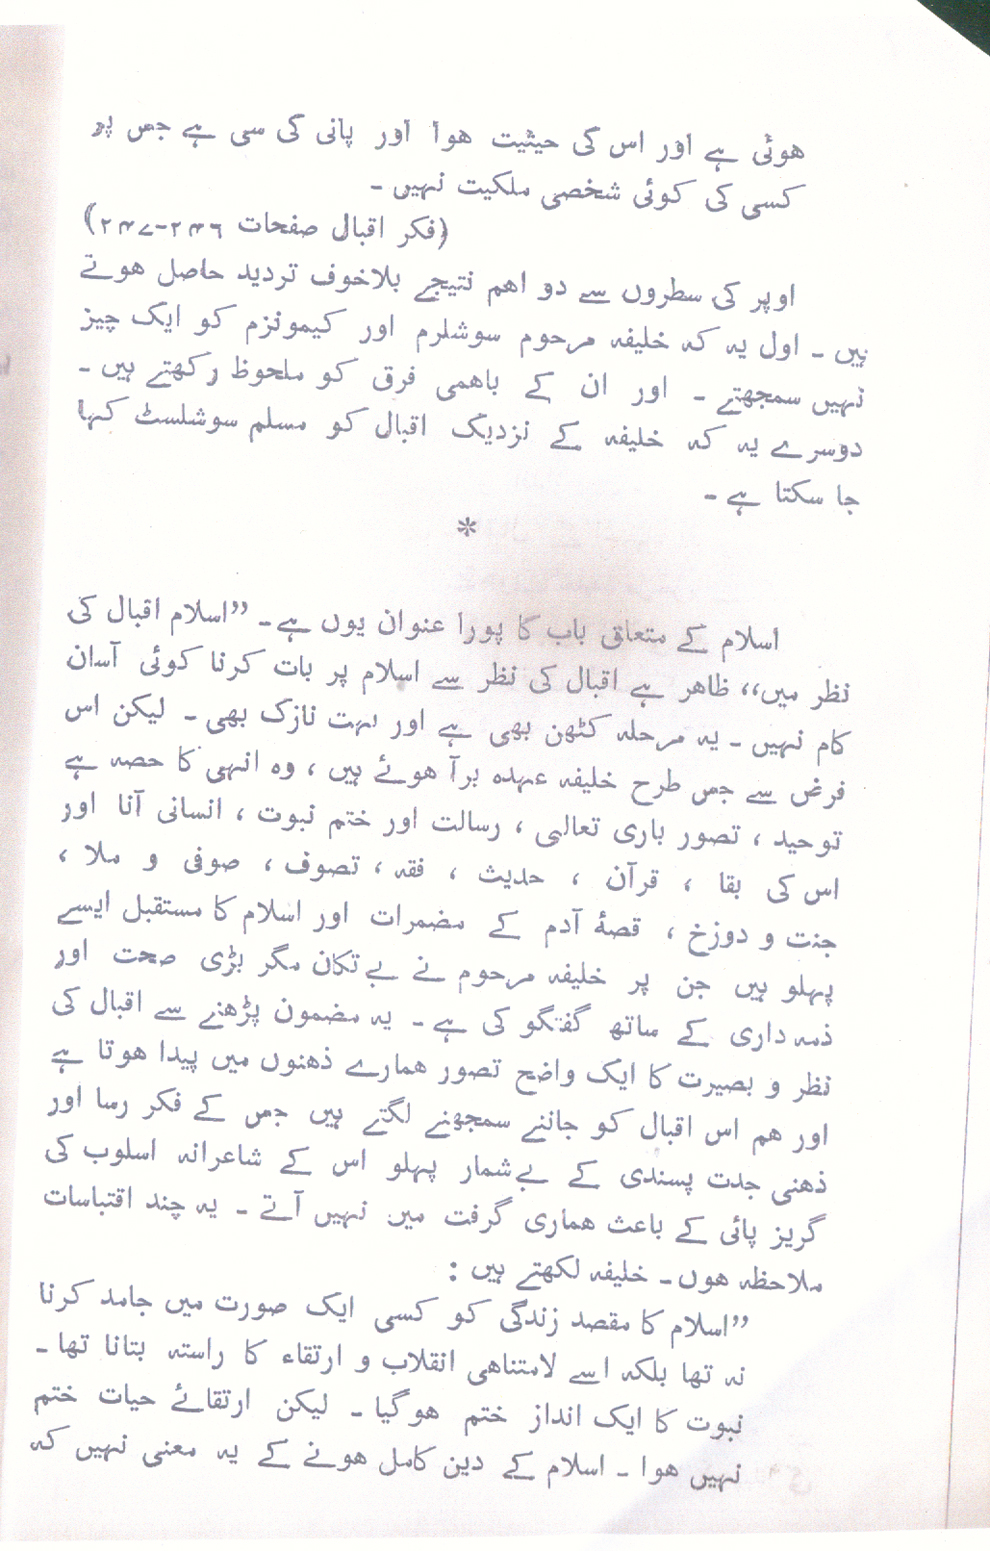 ہوئی ہے اور اس کی حیثیت ہوا اور پانی کی سی ہے جس پر
کسی کی کوئی شخصی ملکیت نہیں ۔
(فکر اقبال صفحات ۲۴۶-۲۴۷)
اوپر کی سطروں سے دو اہم نتیجے بلاخوف تردید حاصل ہوتے
ہیں ۔ اول یہ کہ خلیفہ مرحوم سوشلرم اور کیمونزم کو ایک چیز
نہیں سمجھتے ۔ اور ان کے باہمی فرق کو ملحوظ رکھتے ہیں ۔
دوسرے یہ کہ خلیفہ کے نزدیک اقبال کو مسلم سوشلسٹ کہا
جا سکتا ہے ۔
*
اسلام کے متعلق باب کا پورا عنوان یوں ہے ۔ ”اسلام اقبال کی
نظر میں“ ظاہر ہے اقبال کی نظر سے اسلام پر بات کرنا کوئی آسان
کام نہیں ۔ یہ مرحلہ کٹھن بھی ہے اور بہت نازک بھی ۔ لیکن اس
فرض سے جس طرح خلیفہ عہدہ برآ ہوئے ہیں ، وہ انہی کا حصہ ہے
توحید ، تصور باری تعالیٰ ، رسالت اور ختم نبوت ، انسانی آنا اور
اس کی بقا ، قرآن ، حدیث ، فقہ ، تصوف ، صوفی و ملا ،
جنت و دوزخ ، قصۂ آدم کے مضمرات اور اسلام کا مستقبل ایسے
پہلو ہیں جن پر خلیفہ مرحوم نے بےتکان مگر بڑی صحت اور
ذمہ داری کے ساتھ گفتگو کی ہے ۔ یہ مضمون پڑھنے سے اقبال کی
نظر و بصیرت کا ایک واضح تصور ہمارے ذہنوں میں پیدا ہوتا ہے
اور ہم اس اقبال کو جاننے سمجھنے لگتے ہیں جس کے فکر رسا اور
ذہنی جدت پسندی کے بےشمار پہلو اس کے شاعرانہ اسلوب کی
گریز پائی کے باعث ہماری گرفت میں نہیں آتے ۔ یہ چند اقتباسات
ملاحظہ ہوں ۔ خلیفہ لکھتے ہیں :
”اسلام کا مقصد زندگی کو کسی ایک صورت میں جامد کرنا
نہ تھا بلکہ اسے لامتناہی انقلاب و ارتقاء کا راستہ بتانا تھا ۔
نبوت کا ایک انداز ختم ہوگیا ۔ لیکن ارتقائے حیات ختم
نہیں ہوا ۔ اسلام کے دین کامل ہونے کے یہ معنی نہیں کہ